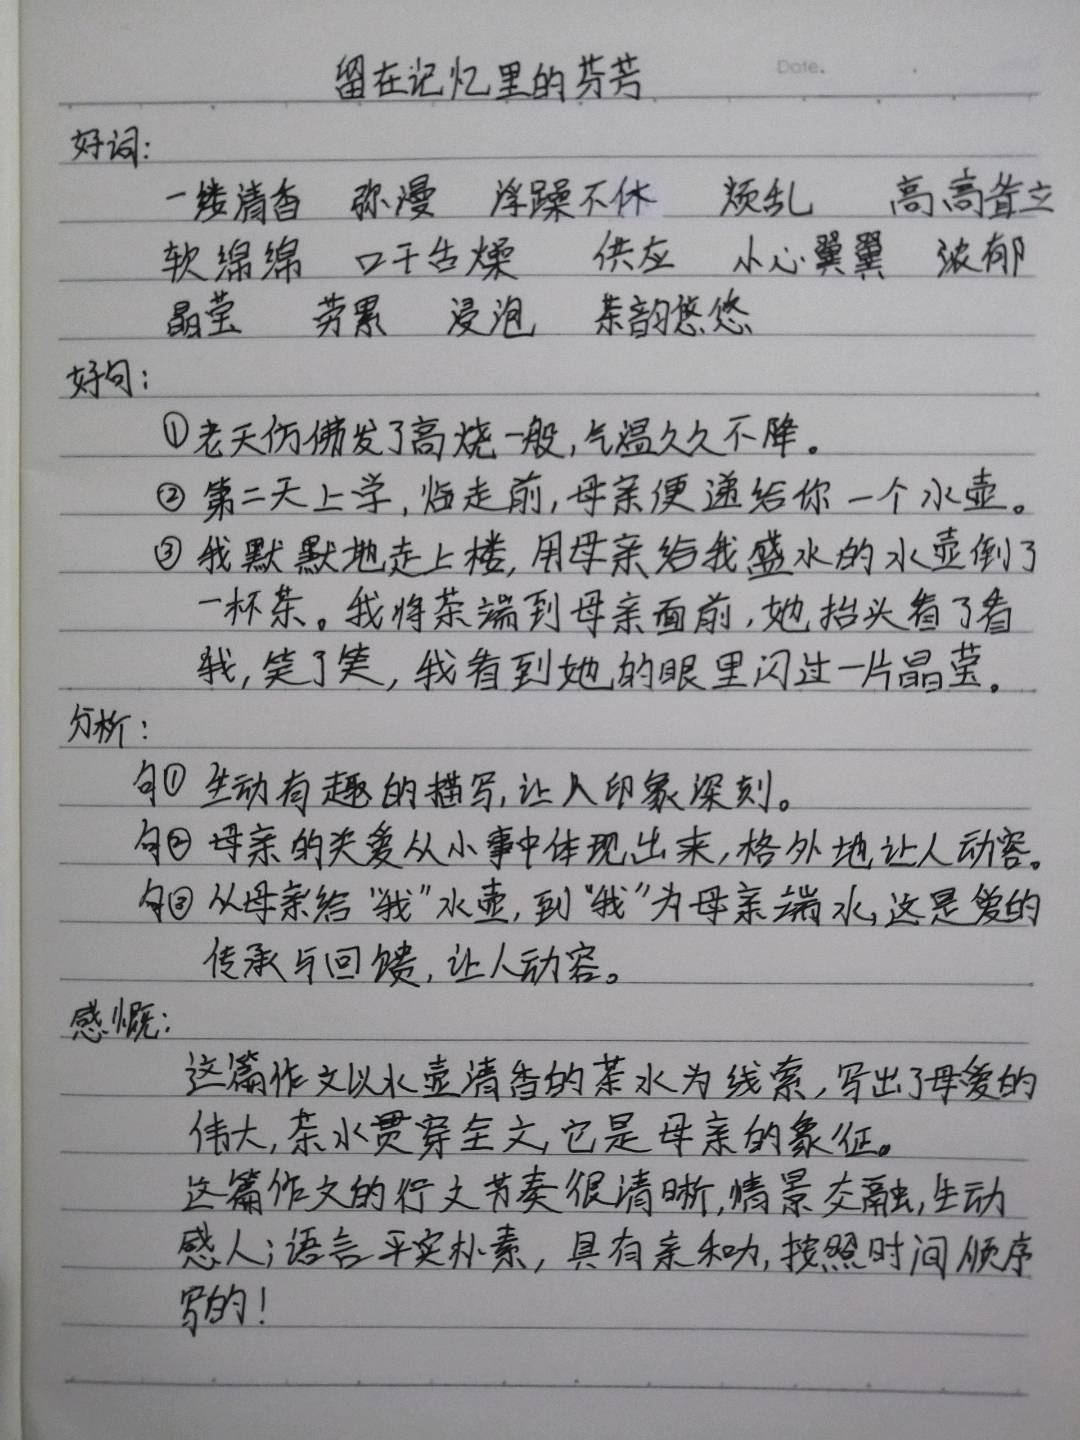 留在记忆里的芬芳
Date.
好词:
一缕清香 弥漫 浮躁不休 烦乱 高高耸立
软绵绵 口干舌燥 供应 小心翼翼 浓郁
晶莹 劳累 浸泡 茶韵悠悠
好句:
①老天仿佛发了高烧一般,气温久久不降。
②第二天上学,临走前,母亲便递给你一个水壶。
③我默默地走上楼,用母亲给我盛水的水壶倒了
一杯茶。我将茶端到母亲面前,她抬头看了看
我,笑了笑,我看到她的眼里闪过一片晶莹。
分析:
句①生动有趣的描写,让人印象深刻。
句②母亲的关爱从小事中体现出来,格外地让人动容。
句③从母亲给“我”水壶,到“我”为母亲端水,这是爱的
传承与回馈,让人动容。
感慨:
这篇作文以水壶清香的茶水为线索,写出了母爱的
伟大,茶水贯穿全文,它是母亲的象征。
这篇作文的行文节奏很清晰,情景交融,生动
感人;语言平实朴素,具有亲和力,按照时间顺序
写的!